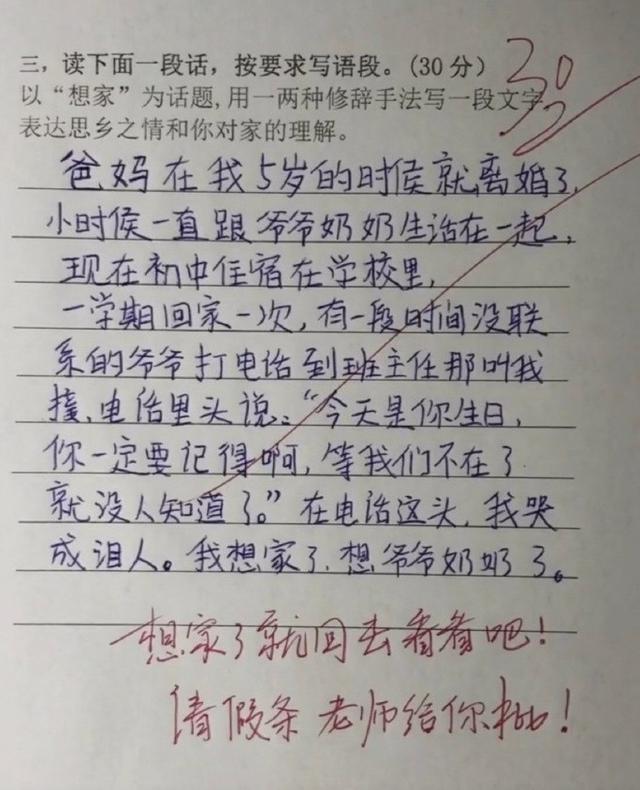 三，读下面一段话，按要求写语段。(30分)
30
以“想家”为话题,用一两种修辞手法写一段文字
表达思乡之情和你对家的理解。
爸妈在我5岁的时侯就离婚了,
小时侯一直跟爷爷奶奶生活在一起,
现在初中住宿在学校里,
一学期回家一次,有一段时间没联
系的爷爷打电话到班主任那叫我
接,电话里头说:“今天是你生日,
你一定要记得啊,等我们不在了
就没人知道了。”在电话这头,我哭
成泪人。我想家了,想爷爷奶奶了。
想家了就回去看看吧!
请假条老师给你批!